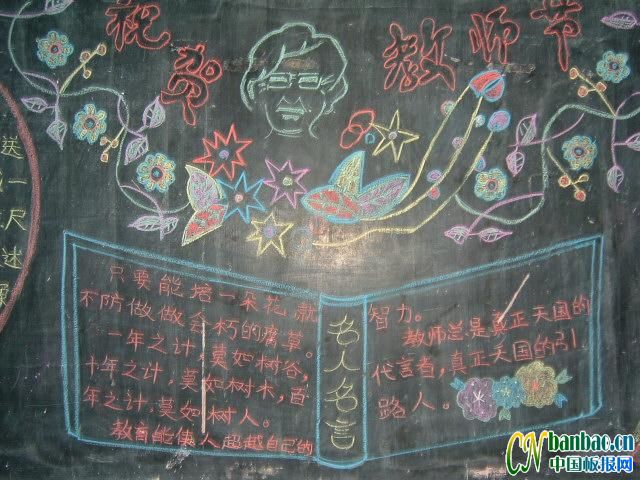 祝贺 教师节
送
一
尺
达
只要能培一朵花,就
不防做做会朽的腐草。
一年之计,莫如树谷,
十年之计,莫如树木,百
年之计,莫如树人。
教育能使人超越自己的
名人名言
智力。
教师兰是真正天国的
代言者,真正天国的引
路人。
CN banbao.cn
中国板报网